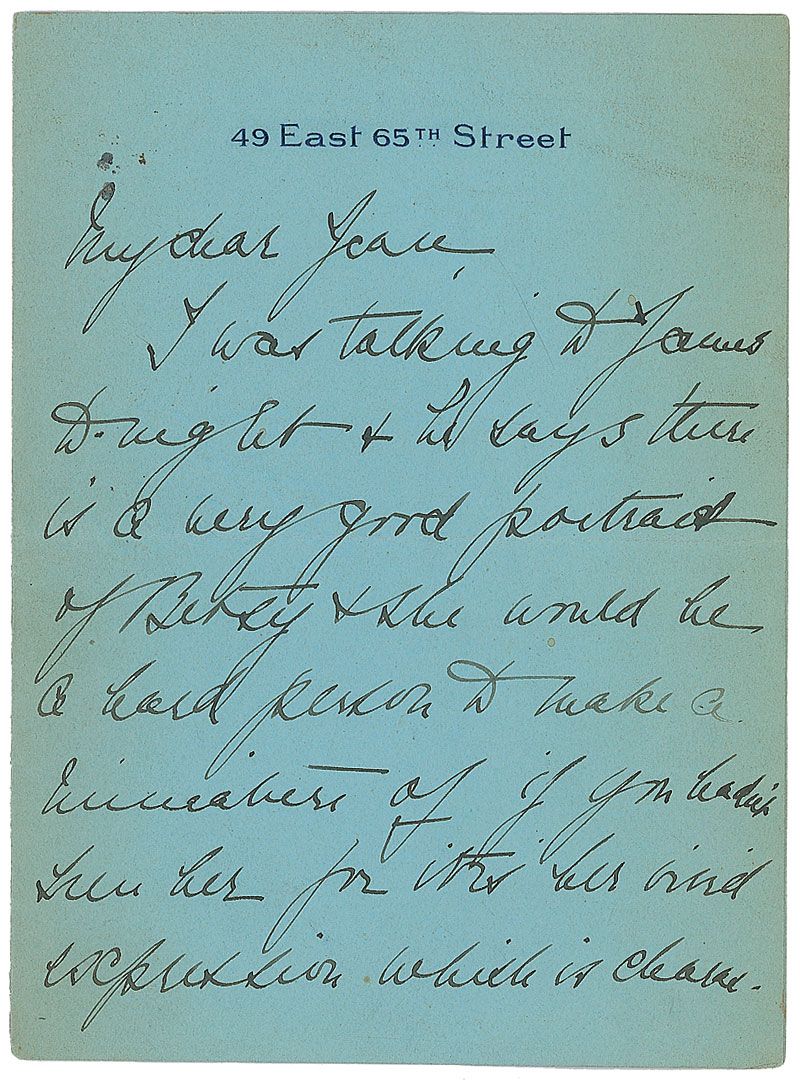 49 East 65TH Street
My dear Jean,
I was talking to James
Dwight & he says there
is a very good portrait
of Betsy & she would be
a hard person to make a
miniature of if you hadn't
seen her for it is her vivid
expression which is charm-